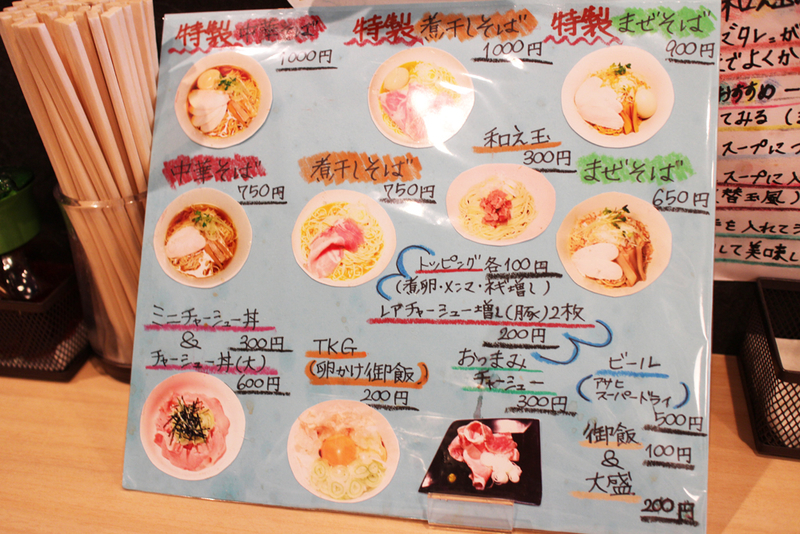 特製 中華そば
1000円
特製 煮干しそば
1000円
特製 まぜそば
900円
中華そば
750円
煮干しそば
750円
和え玉
300円
まぜそば
650円
トッピング 各100円
(煮卵・メンマ・ネギ増し)
レアチャーシュー増し(豚)2枚
200円
ミニチャーシュー丼
& 300円
チャーシュー丼(大)
600円
TKG
(卵かけ御飯)
200円
おつまみ
チャーシュー
300円
ビール
(アサヒ
スーパードライ)
500円
御飯
100円
&
大盛
200円
和え玉
タレが
でよくか
おすすめ
てみる
スープにつ
スープに入
替玉風)
を入れて
して美味し